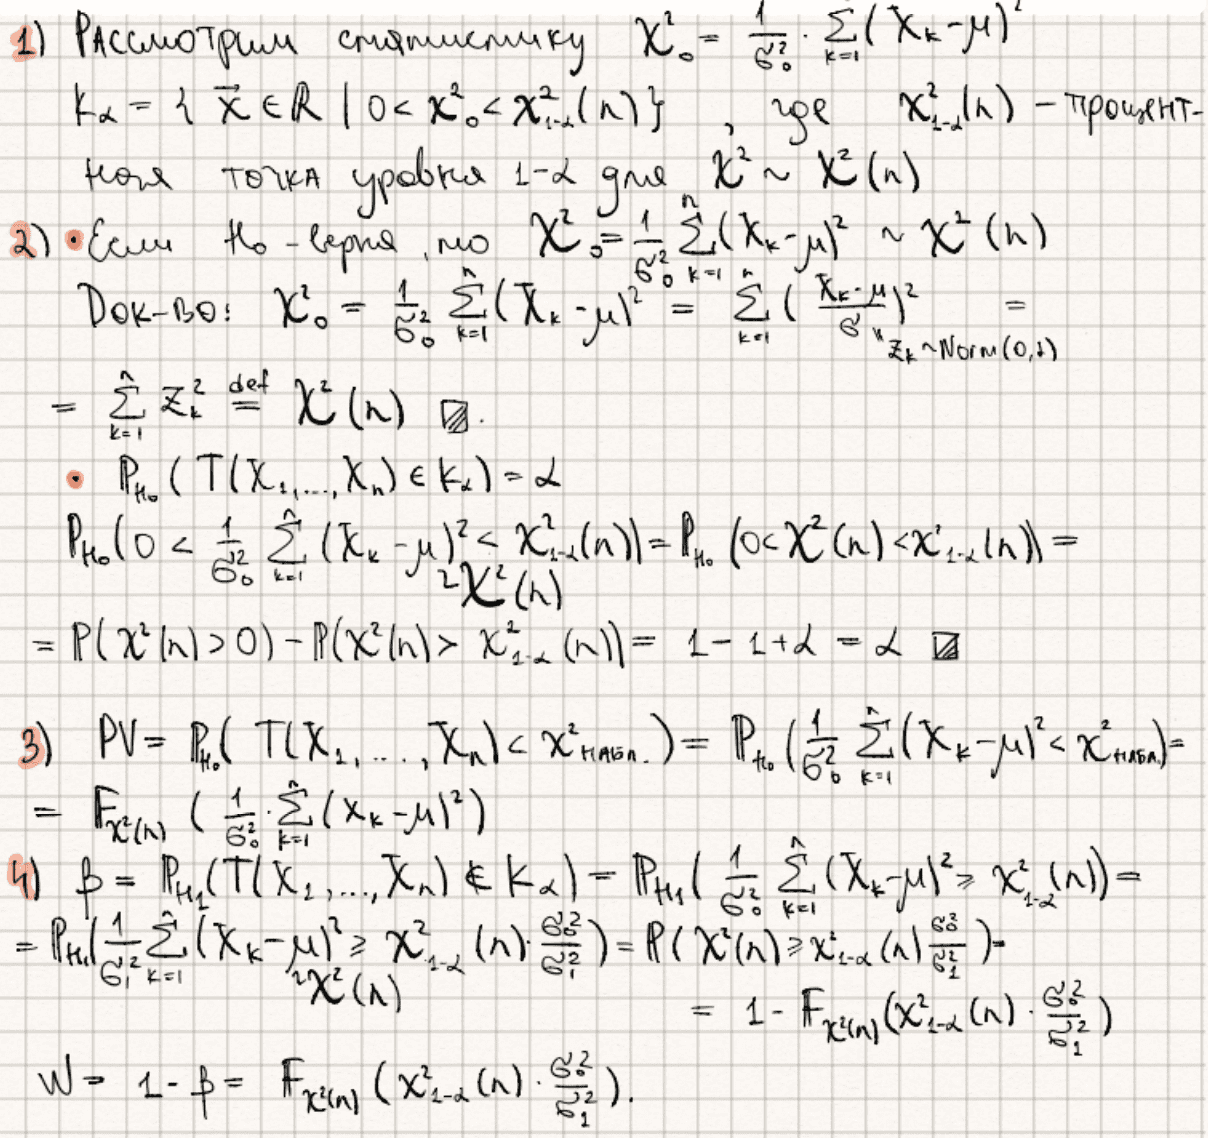 1) Рассмотрим статистику χ²₀ = 1/σ₀² · Σₖ₌₁(Xₖ-μ)²
Kα = { x⃗ ∈ ℝ | 0 < χ²₀ < χ²₁₋α(n)} , где χ²₁₋α(n) - процент-
ная точка уровня 1-α для χ² ~ χ²(n)
2) • Если H₀ - верна, то χ²₀ = 1/σ₀² Σⁿₖ₌₁(Xₖ-μ)² ~ χ²(n)
Док-во: χ²₀ = 1/σ₀² Σⁿₖ₌₁(Xₖ-μ)² = Σⁿₖ₌₁((Xₖ-μ)/σ)² =
" Zₖ ~ Norm(0,1)
= Σⁿₖ₌₁ Zₖ² def= χ²(n) ▨.
• ℙH₀(T(X₁,...,Xₙ) ∈ Kα) = α
ℙH₀(0 < 1/σ₀² Σⁿₖ₌₁(Xₖ-μ)² < χ²₁₋α(n)) = ℙH₀(0<χ²(n)<χ²₁₋α(n)) =
~χ²(n)
= ℙ(χ²(n)>0) - ℙ(χ²(n)> χ²₁₋α(n)) = 1 - 1+α = α ▨
3) PV = ℙH₀( T(X₁,...,Xₙ) < χ²набл.) = ℙH₀(1/σ₀² Σⁿₖ₌₁(Xₖ-μ)² < χ²набл.) =
= Fχ²(n) ( 1/σ₀² · Σⁿₖ₌₁(xₖ-μ)²)
4) β = ℙH₁(T(X₁,...,Xₙ) ∉ Kα) = ℙH₁( 1/σ₀² Σⁿₖ₌₁(Xₖ-μ)² ⩾ χ²₁₋α(n)) =
= ℙH₁(1/σ₁² Σⁿₖ₌₁(Xₖ-μ)² ⩾ χ²₁₋α(n)·σ₀²/σ₁²) = ℙ(χ²(n) ⩾ χ²₁₋α(n) σ₀²/σ₁²) =
~χ²(n)
= 1 - Fχ²(n)(χ²₁₋α(n)·σ₀²/σ₁²)
W = 1 - β = Fχ²(n)(χ²₁₋α(n)·σ₀²/σ₁²).